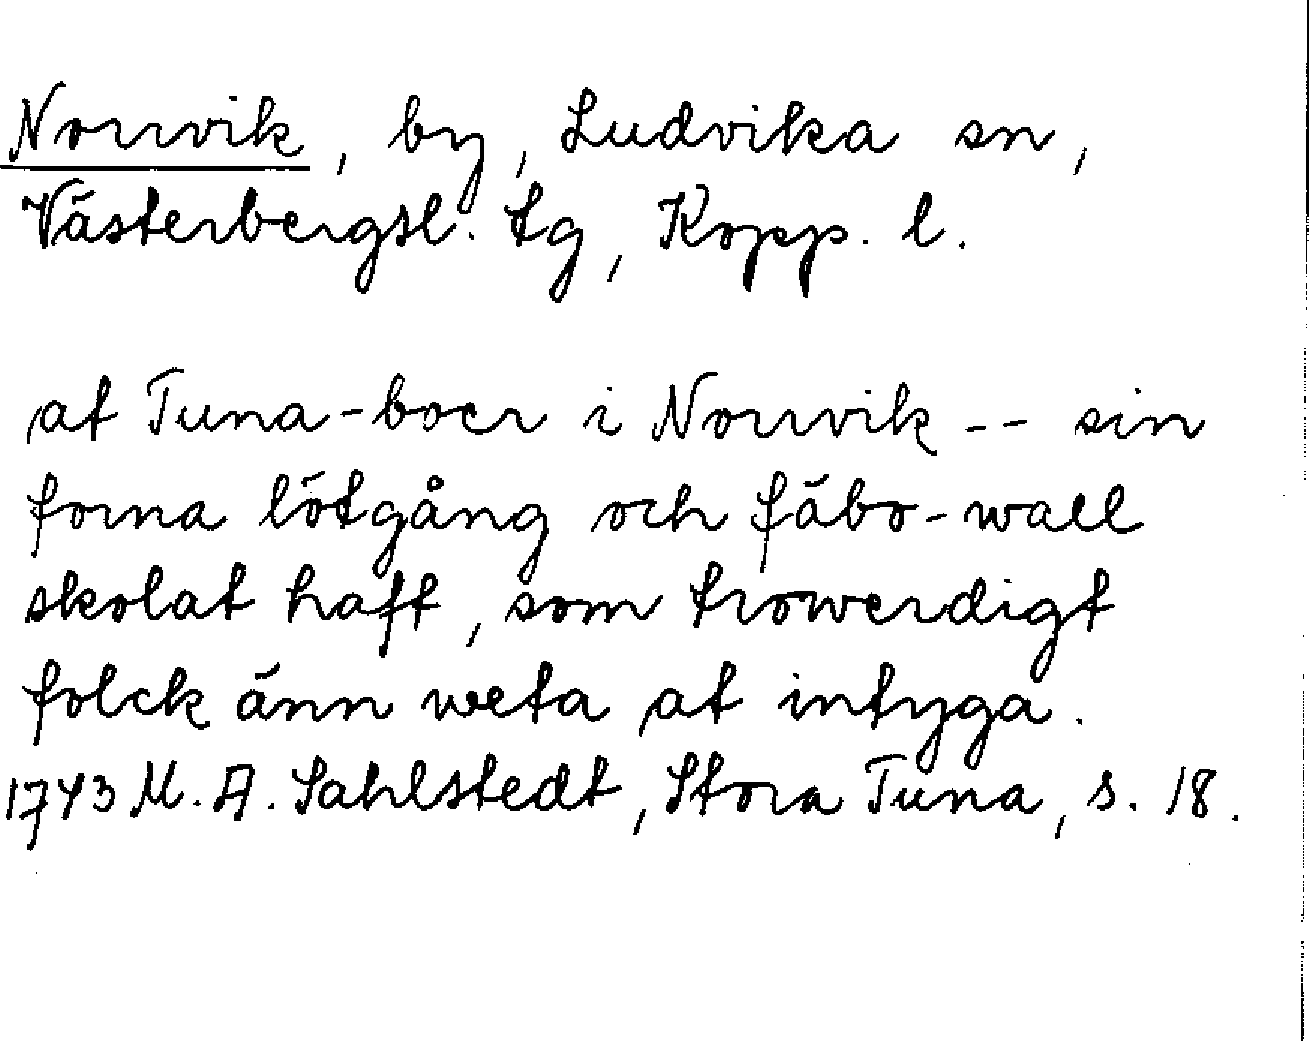 Norrvik, by, Ludvika sn,
Västerbergsl. tg, Kopp. l.
at Tuna-boer i Norrvik -- sin
forna lötgång och fäbo-wall
skolat haft, som trowerdigt
folck änn weta at intyga.
1743 M. A. Sahlstedt, Stora Tuna, s. 18.